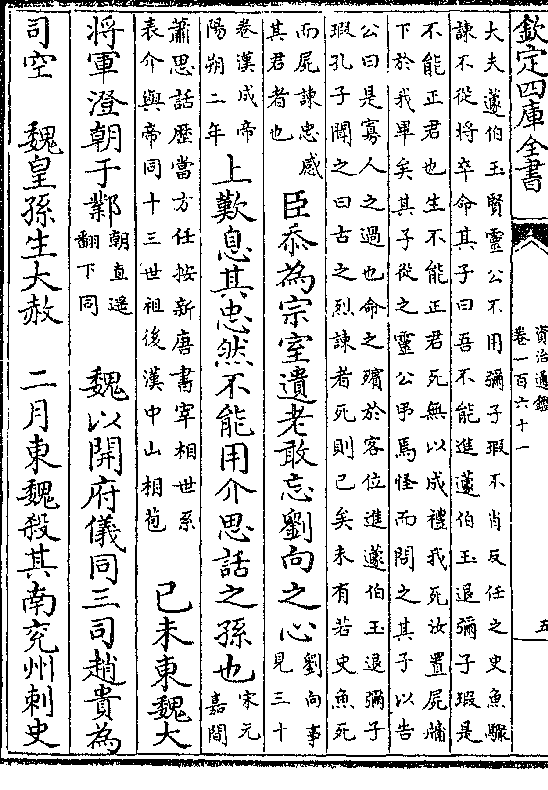 欽定四庫全書
資治通鑑
卷一百六十一
五
大夫蘧伯玉賢靈公不用彌子瑕不肖反任之史魚驟
諫不從將卒命其子曰吾不能進蘧伯玉退彌子瑕是
不能正君也生不能正君死無以成禮我死汝置屍牖
下於我畢矣其子從之靈公弔焉怪而問之其子以告
公曰是寡人之過也命之殯於客位進蘧伯玉退彌子
瑕孔子聞之曰古之烈諫者死則已矣未有若史魚死
而屍諫忠感
其君者也
臣忝為宗室遺老敢忘劉向之心
劉向事
見三十
卷漢成帝
陽朔二年
上歎息其忠然不能用介思話之孫也
宋元
嘉間
蕭思話歷當方任按新唐書宰相世系
表介與帝同十三世祖後漢中山相苞
已未東魏大
將軍澄朝于鄴
朝直遙
翻下同
魏以開府儀同三司趙貴為
司空 魏皇孫生大赦 二月東魏殺其南兗州刺史